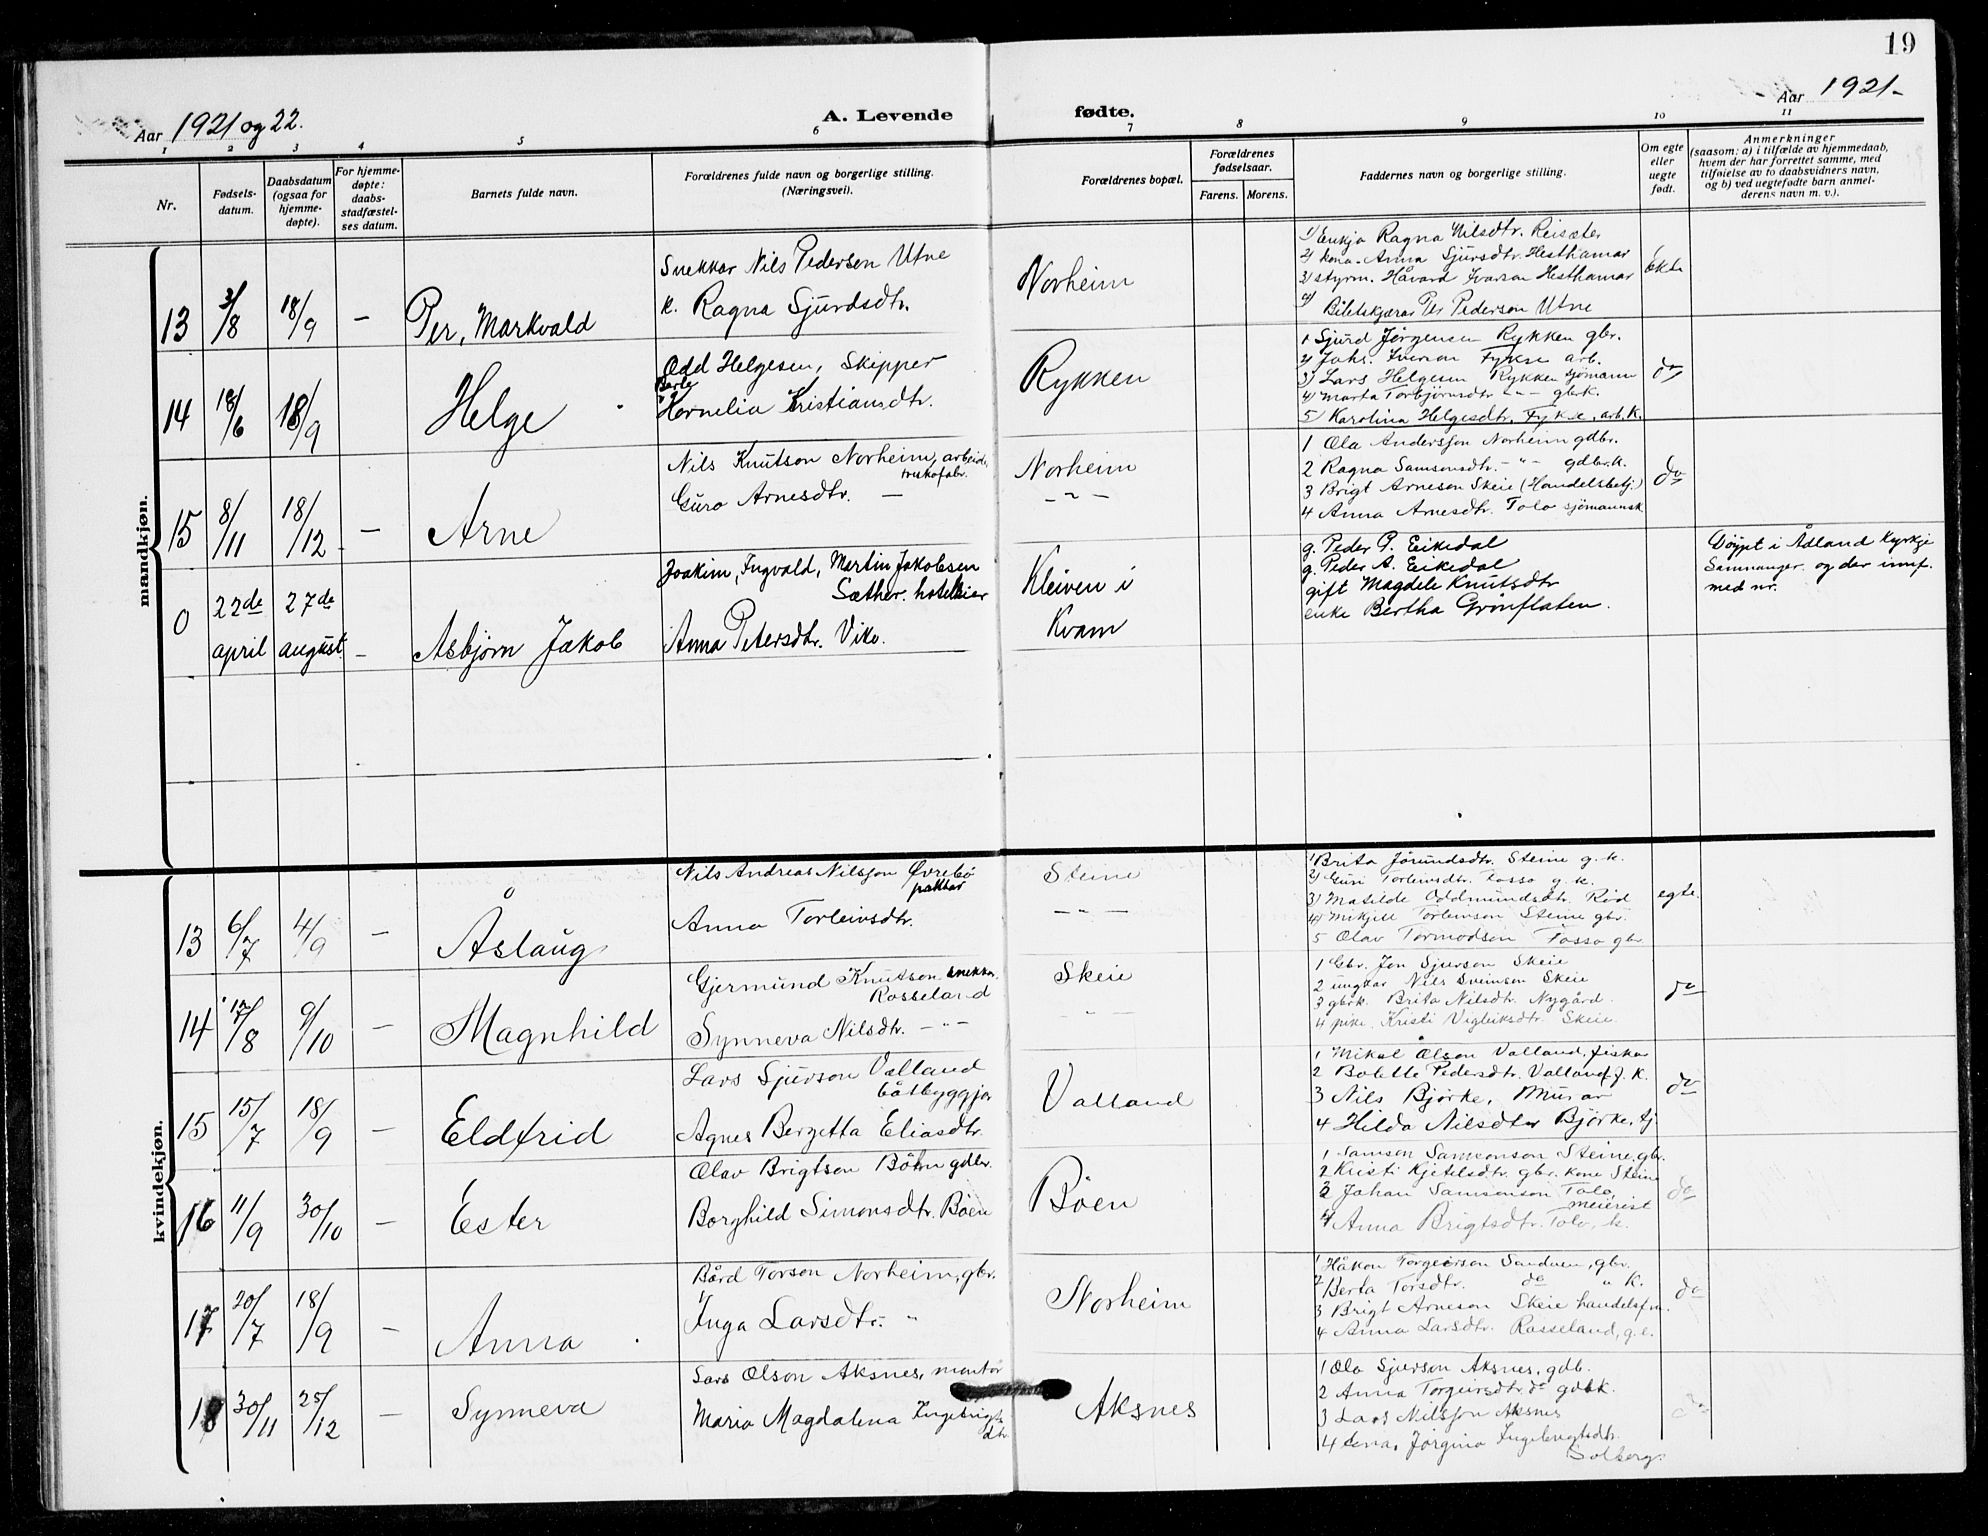 19
Aar 1921 og 22.
A. Levende fødte.
Aar 1921-
1 2 3 4 5 6 7 8 9 10 11
Nr.
Fødsels-
datum.
Daabsdatum
(ogsaa for
hjemme-
døpte).
For hjemme-
døpte:
daabs-
stadfæstel-
ses datum.
Barnets fulde navn.
Forældrenes fulde navn og borgerlige stilling.
(Næringsvei).
Forældrenes bopæl.
Forældrenes
fødselsaar.
Farens. Morens.
Faddernes navn og borgerlige stilling.
Om egte
eller
uegte
født.
Anmerkninger
(saasom: a) i tilfælde av hjemmedaab,
hvem der har forrettet samme, med
tilføielse av to daabsvidners navn,
og b) ved uegtefødte barn anmel-
derens navn m. v.).
mandkjøn.
13 3/8 18/9 – Per, Markvald
Snekkar Nils Pedersen Utne
k. Ragna Sjurdsdtr.
Norheim
1) Enkja Ragna Nilsdtr. Reisæter
2) kona Anna Sjursdtr. Hesthamar
3) styrm. Håvard Ivarson Hesthamar
4) Biletskjærar Per Pederson Utne
Ekte
14 18/6 18/9 Helge
Odd Helgesen, Skipper
Berle
Kornelia Kristiansdtr.
Rykken
1 Sjurd Jørgensen Rykken gbr.
2) Johs. Iverson Fykse arb.
3) Lars Helgesen Rykken sjömann
4) Marta Torbjörnsdtr -"- gbrk.
5) Karolina Helgesdtr. Fykse, arb.k.
do
15 8/11 18/12 – Arne
Nils Knutson Norheim, arbeid.
trikofabr.
Guro Arnesdtr. –
Norheim
-"-
1 Ola Andersson Norheim gdbr.
2 Ragna Samsonsdtr. -"- gdbr.k.
3 Brigt Arneson Skeie (Handelsbetj.)
4 Anna Arnesdtr. Tolo sjömannsk
do
0 22de april 27de august – Asbjørn Jakob
Joakim, Ingvald, Martin Jakobsen
Sæther. hotelleier
Anna Petersdtr. Vike.
Kleiven i
Kvam
g. Peder P. Eikedal
g. Peder A. Eikedal
gift Magdele Knutsdtr
enke Bertha Grønflaten.
Döypt i Ådland Kyrkje
Samnanger og der innf.
med nr.
kvindekjøn.
13 6/7 4/9 – Åslaug
Nils Andreas Nilsson Øvrebø
pakkar
Anna Torleivsdtr.
Steine
-"-
1 Brita Jörundsdtr. Steine g. k.
2) Guri Torleivsdtr. Fosso g. k.
3) Matilde Oddmundsdtr. Röd
4) Mikjell Torleivson Steine gbr.
5 Olav Tormodson Fosso gbr
egte.
14 17/8 9/10 – Magnhild
Gjermund Knutson snekkar
Rosseland
Synneva Nilsdtr. -"-
Skeie
-"-
1 Gbr. Jon Sjurson Skeie
2 ungkar Nils Sveinsen Skeie
3 gbrk. Brita Nilsdtr. Nygård.
4 pike. Kristi Vigleiksdtr. Skeie.
do
15 15/7 18/9 – Eldfrid
Lars Sjurson Valland
båtbyggjar
Agnes Bergetta Eliasdtr.
Valland
1 Mikal Olson Valland, fiskar
2 Bolette Pedersdtr. Valland f. k.
3 Nils Björke, Murar
4 Hilda Nilsdtr Björke, tj.
do
16 11/9 30/10 – Ester
Olav Brigtson Böen gdbr.
Borghild Simonsdtr. Böen
Böen
1 Samson Samsonson Steine, gbr.
2 Kristi Kjetilsdtr. gbr. kone Steine
3 Johan Samsonson Tolo,
meierist
4 Anna Brigtsdtr. Tolo, k.
do
17 20/7 18/9 – Anna
Bård Torson Norheim, gbr.
Inga Larsdtr. "
Norheim
1 Håkon Torgeirson Sandven, gbr.
2 Berta Torsdtr. do " k.
3 Brigt Arneson Skeie handelsfm.
4 Anna Larsdtr. Rosseland, g.e.
do
18 30/11 25/12 – Synneva
Lars Olson Aksnes, montör
Maria Magdalena Ingebrigts
dtr.
Aksnes
1 Ola Sjurson Aksnes, gdb.
2 Anna Torgeirsdtr. do gdbk.
3 Lars Nilsson Aksnes
4 Jørgina Ingebrigtsdtr.
Solberg.
do